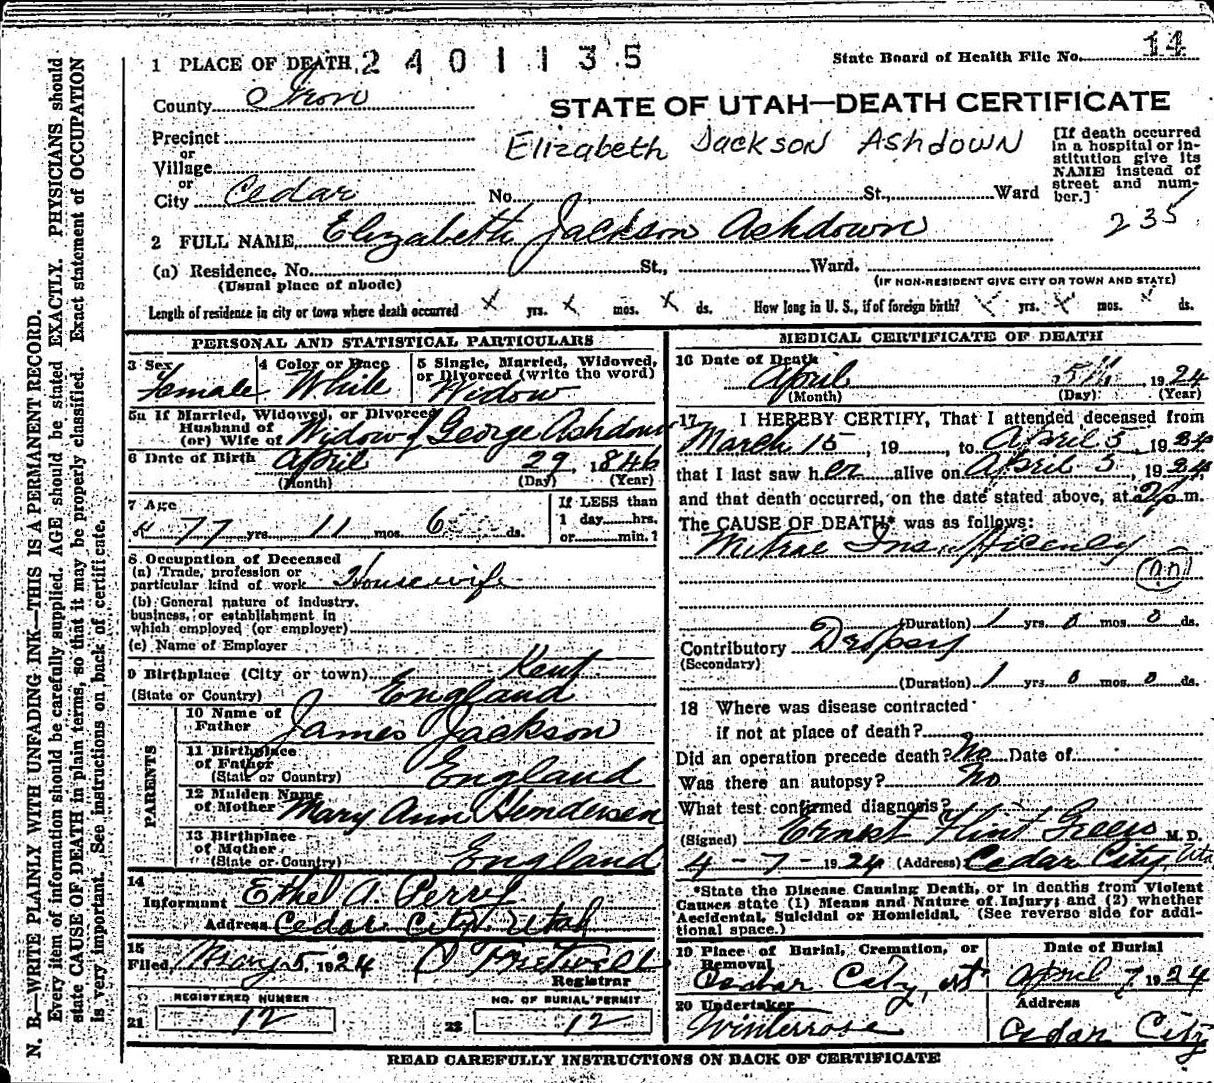 1 PLACE OF DEATH 2401135
State Board of Health File No. 14
County Iron
STATE OF UTAH—DEATH CERTIFICATE
Precinct
or
Village
or
City Cedar
Elizabeth Jackson Ashdown
No. St., Ward
[If death occurred
in a hospital or in-
stitution give its
NAME instead of
street and num-
ber.]
235
2 FULL NAME Elizabeth Jackson Ashdown
(a) Residence. No. St., Ward.
(Usual place of abode)
(IF NON-RESIDENT GIVE CITY OR TOWN AND STATE)
Length of residence in city or town where death occurred x yrs. x mos. x ds. How long in U. S., if of foreign birth? x yrs. x mos. x ds.
PERSONAL AND STATISTICAL PARTICULARS
3 Sex Female
4 Color or Race White
5 Single, Married, Widowed,
or Divorced (write the word)
Widow
5a If Married, Widowed, or Divorced
Husband of
(or) Wife of Widow of George Ashdown
6 Date of Birth April 29, 1846
(Month) (Day) (Year)
7 Age 77 yrs. 11 mos. 6 ds.
If LESS than
1 day hrs.
or min.?
8 Occupation of Deceased
(a) Trade, profession or
particular kind of work Housewife
(b) General nature of industry,
business, or establishment in
which employed (or employer)
(c) Name of Employer
9 Birthplace (City or town) Kent
(State or Country) England
PARENTS
10 Name of
Father James Jackson
11 Birthplace
of Father
(State or Country) England
12 Maiden Name
of Mother Mary Ann Hendersen
13 Birthplace
of Mother
(State or Country) England
14
Informant Ethel A. Perry
Address Cedar City Utah
15
Filed May 5, 1924
Registrar
REGISTERED NUMBER
21 12
NO. OF BURIAL PERMIT
22 12
MEDICAL CERTIFICATE OF DEATH
16 Date of Death
April 5th, 1924
(Month) (Day) (Year)
17 I HEREBY CERTIFY, That I attended deceased from
March 15, 19, to April 5, 1924
that I last saw her alive on April 5, 1924
and that death occurred, on the date stated above, at 2 p.m.
The CAUSE OF DEATH* was as follows:
Mitral
(Duration) 1 yrs. 0 mos. 0 ds.
Contributory Dropsy
(Secondary)
(Duration) 1 yrs. 0 mos. 0 ds.
18 Where was disease contracted
if not at place of death?
Did an operation precede death? No Date of
Was there an autopsy? No
What test confirmed diagnosis?
(Signed) Ernest Flint Green M. D.
4-7-1924 (Address) Cedar City, Utah
*State the Disease Causing Death, or in deaths from Violent
Causes state (1) Means and Nature of Injury; and (2) whether
Accidental, Suicidal or Homicidal. (See reverse side for addi-
tional space.)
19 Place of Burial, Cremation, or
Removal
Cedar City, Ut
Date of Burial
April 7, 1924
20 Undertaker
Winterrose
Address
Cedar City
READ CAREFULLY INSTRUCTIONS ON BACK OF CERTIFICATE
N. B.—WRITE PLAINLY WITH UNFADING INK—THIS IS A PERMANENT RECORD.
Every item of information should be carefully supplied. AGE should be stated EXACTLY. PHYSICIANS should
state CAUSE OF DEATH in plain terms, so that it may be properly classified. Exact statement of OCCUPATION
is very important. See instructions on back of certificate.